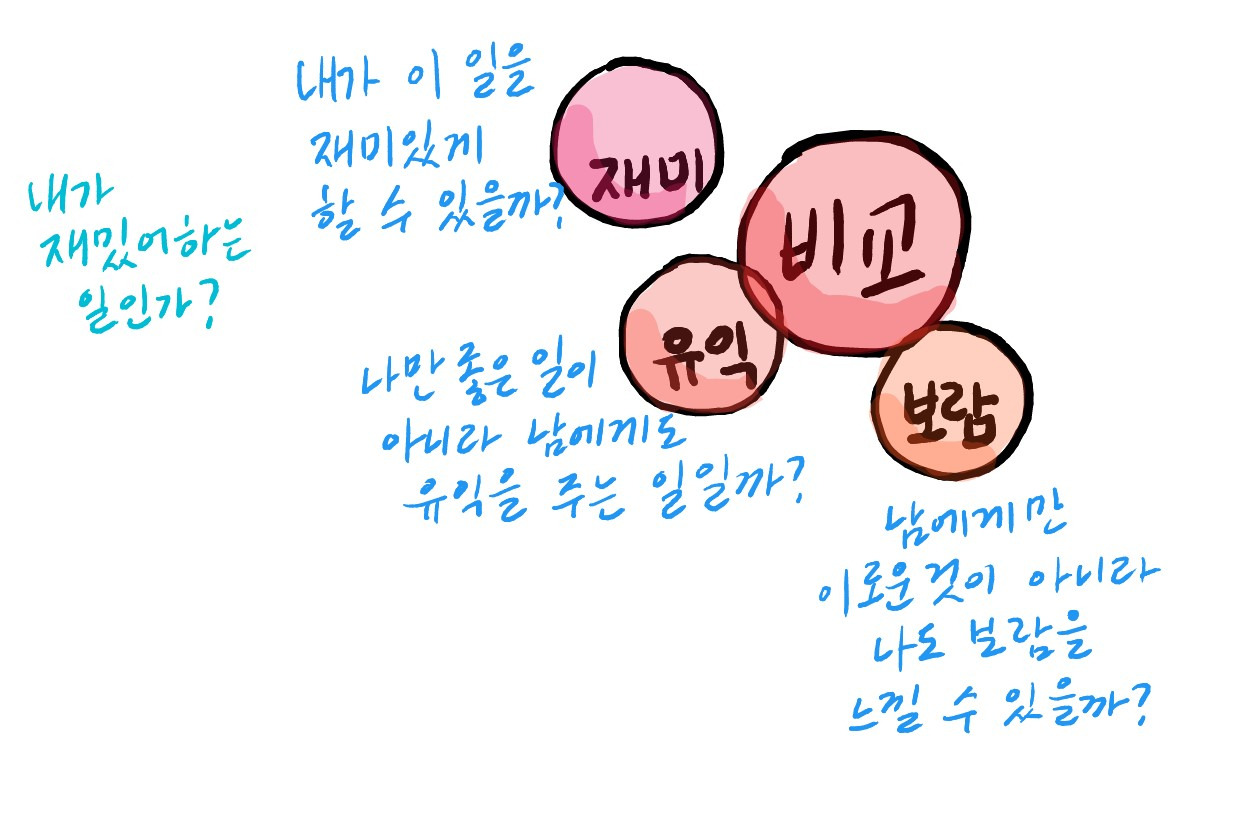 내가 이 일을
재미있게
할 수 있을까?
재미
비교
내가
재밌어하는
일인가?
유익
나만 좋은 일이
아니라 남에게도
유익을 주는 일일까?
보람
남에게만
이로운것이 아니라
나도 보람을
느낄 수 있을까?